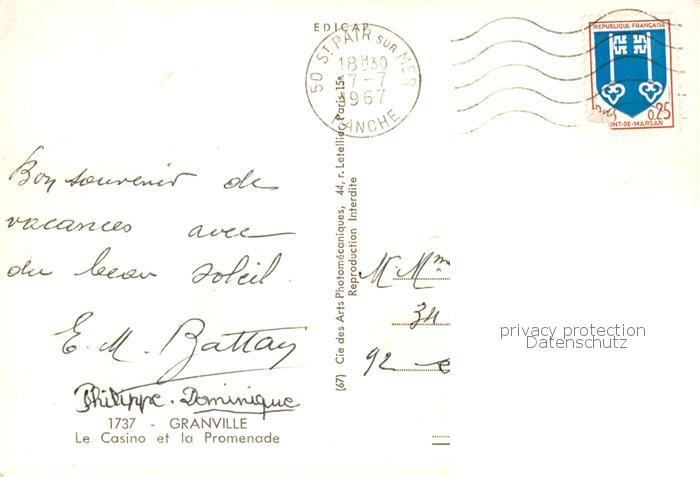 EDICAP
50 ST PAIR SUR MER
18H30
7-7
1967
MANCHE
REPUBLIQUE FRANÇAISE
0,25
ONT-DE-MARSAN
Bon souvenir de
vacances avec
du beau soleil.
E. M. Battay
Philippe. Dominique
1737 - GRANVILLE
Le Casino et la Promenade
(67) Cie des Arts Photomécaniques, 44, r. Letellier, Paris-15e
Reproduction Interdite
M. Mme
34
92
privacy protection
Datenschutz